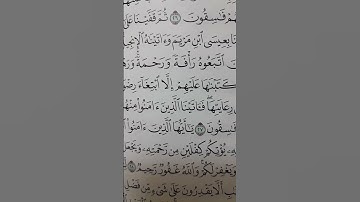 هُمْ فَـٰسِقُونَ ٢٦ ثُمَّ قَفَّيْنَا عَلَ
نَا بِعِيسَى ٱبْنِ مَرْيَمَ وَءَاتَيْنَـٰهُ ٱلْإِنجِيـ
نَ ٱتَّبَعُوهُ رَأْفَةً وَرَحْمَةً وَ
كَتَبْنَـٰهَا عَلَيْهِمْ إِلَّا ٱبْتِغَآءَ رِضْوَ
رِعَايَتِهَا ۖ فَـَٔاتَيْنَا ٱلَّذِينَ ءَامَنُوا۟ مِنْهُ
فَـٰسِقُونَ ٢٧ يَـٰٓأَيُّهَا ٱلَّذِينَ ءَامَنُوا۟
هِۦ يُؤْتِكُمْ كِفْلَيْنِ مِن رَّحْمَتِهِۦ وَيَجْعَل
وَيَغْفِرْ لَكُمْ ۚ وَٱللَّهُ غَفُورٌ رَّحِيمٌ ٢٨
ـبِ أَلَّا يَقْدِرُونَ عَلَىٰ شَىْءٍ مِّن فَضْلِ